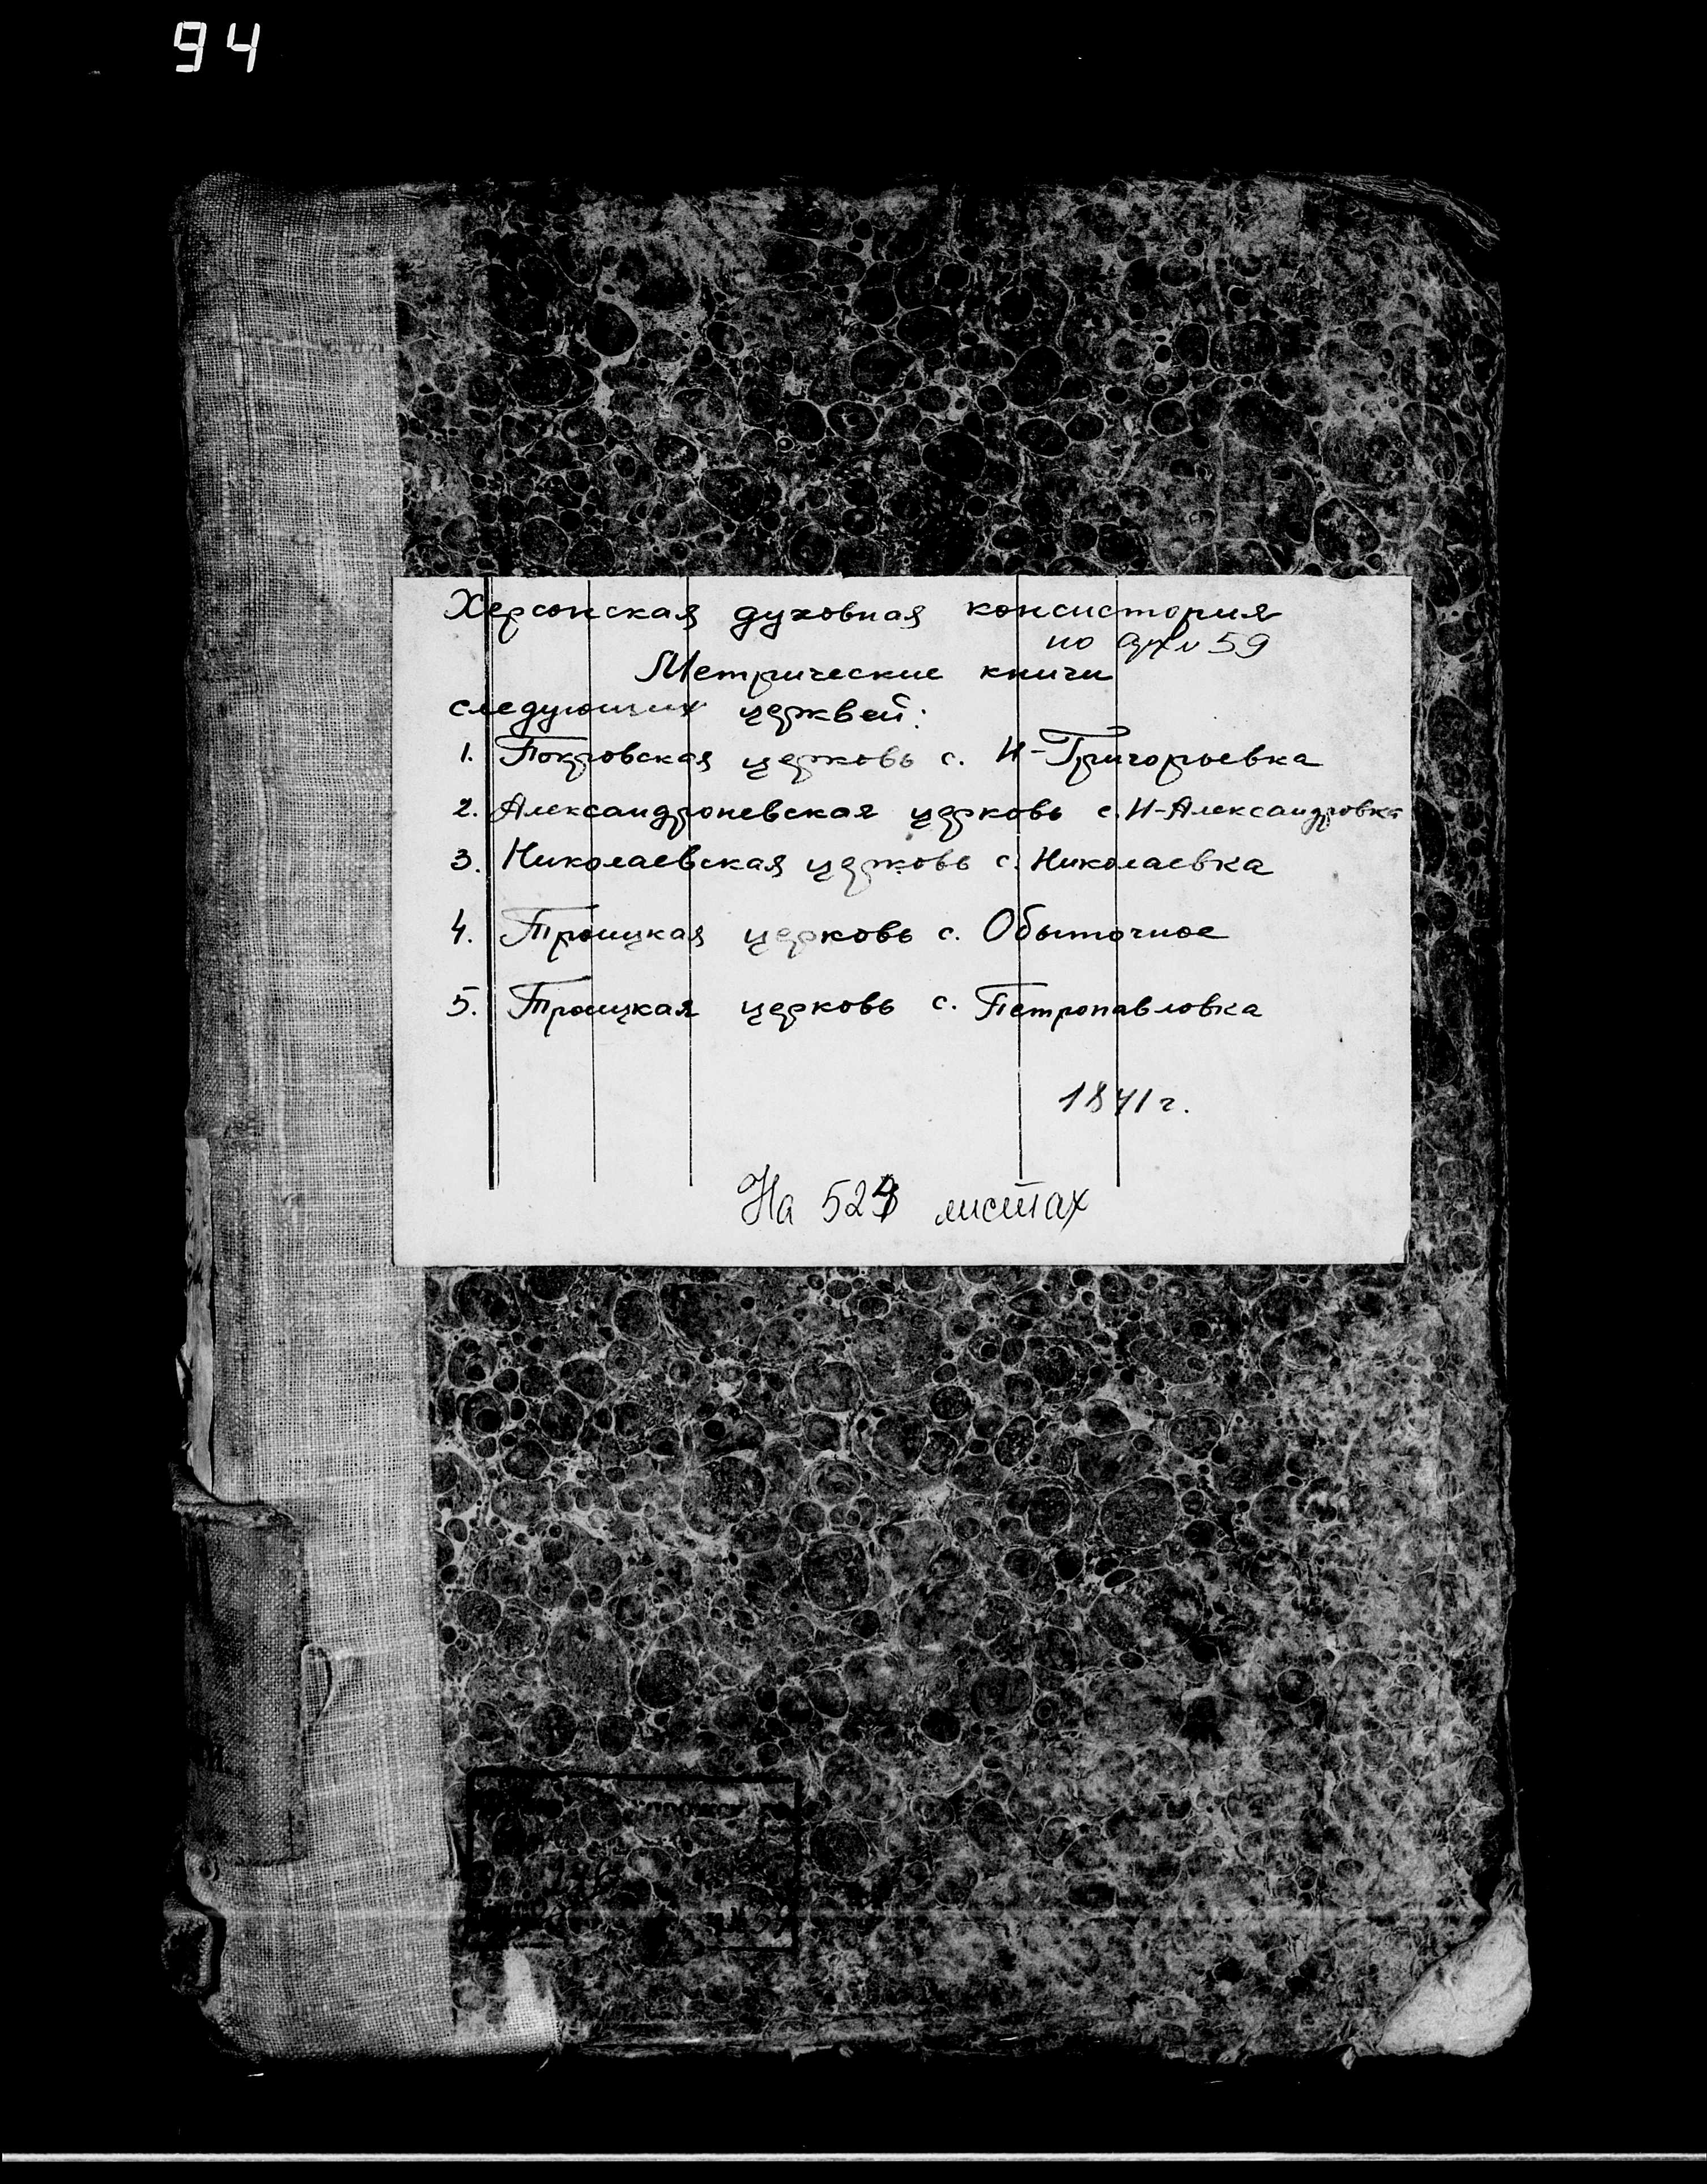 94
Херсонская духовная консистория
по 59
Метрические книги
следующих церквей:
1. Покровская церковь с. Н-Григорьевка
2. Александроневская церковь с. Н-Александровка
3. Николаевская церковь с. Николаевка
4. Троицкая церковь с. Обыточное
5. Троицкая церковь с. Петропавловка
1871 г.
На 524 листах